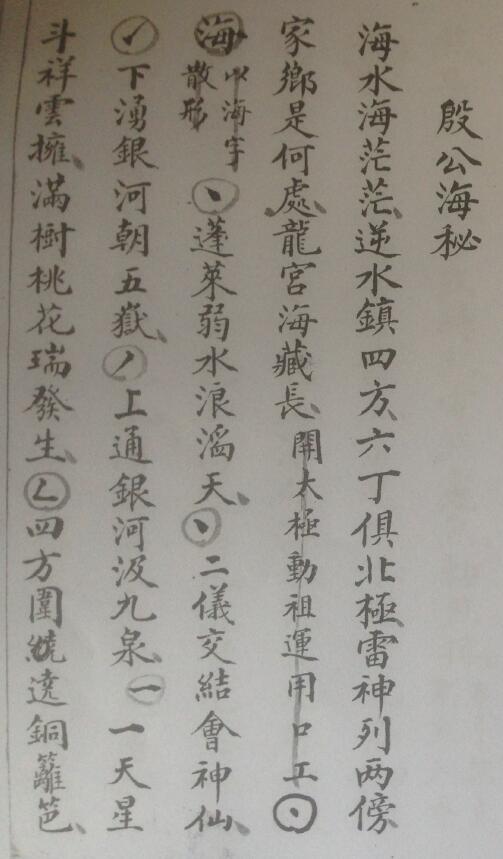 殷公海秘
海水海茫茫、逆水鎮四方、六丁俱北極雷神列两傍、
家鄉是何處、龍宮海藏長、開太極動祖運用口工丶
海 以海字散形 丶蓬萊弱水浪滔天、丶二儀交結會神仙、
㇀下湧銀河朝五嶽、丿上通銀河汲九泉、一一天星
斗祥雲擁、滿樹桃花瑞發生、ㄥ四方圍繞遶銅籬笆、